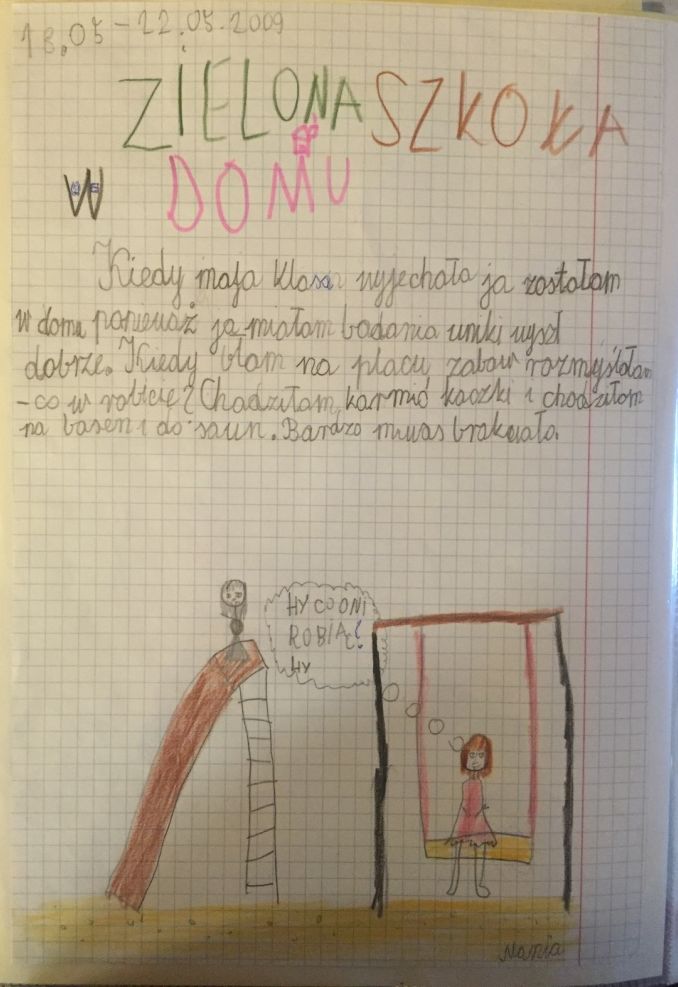 18.05-22.05.2009
ZIELONA SZKOŁA
W DOMU
Kiedy moja klasa wyjechała ja zostałam
w domu ponieważ ja miałam badania
dobrze. Kiedy błam na placu zabaw rozmyślałam
-co w robicie? Chodziłam karmić kaczki i chodziłam
na basen i do saun. Bardzo mi was brakowało.
HY CO ONI
ROBIĄ?
HY